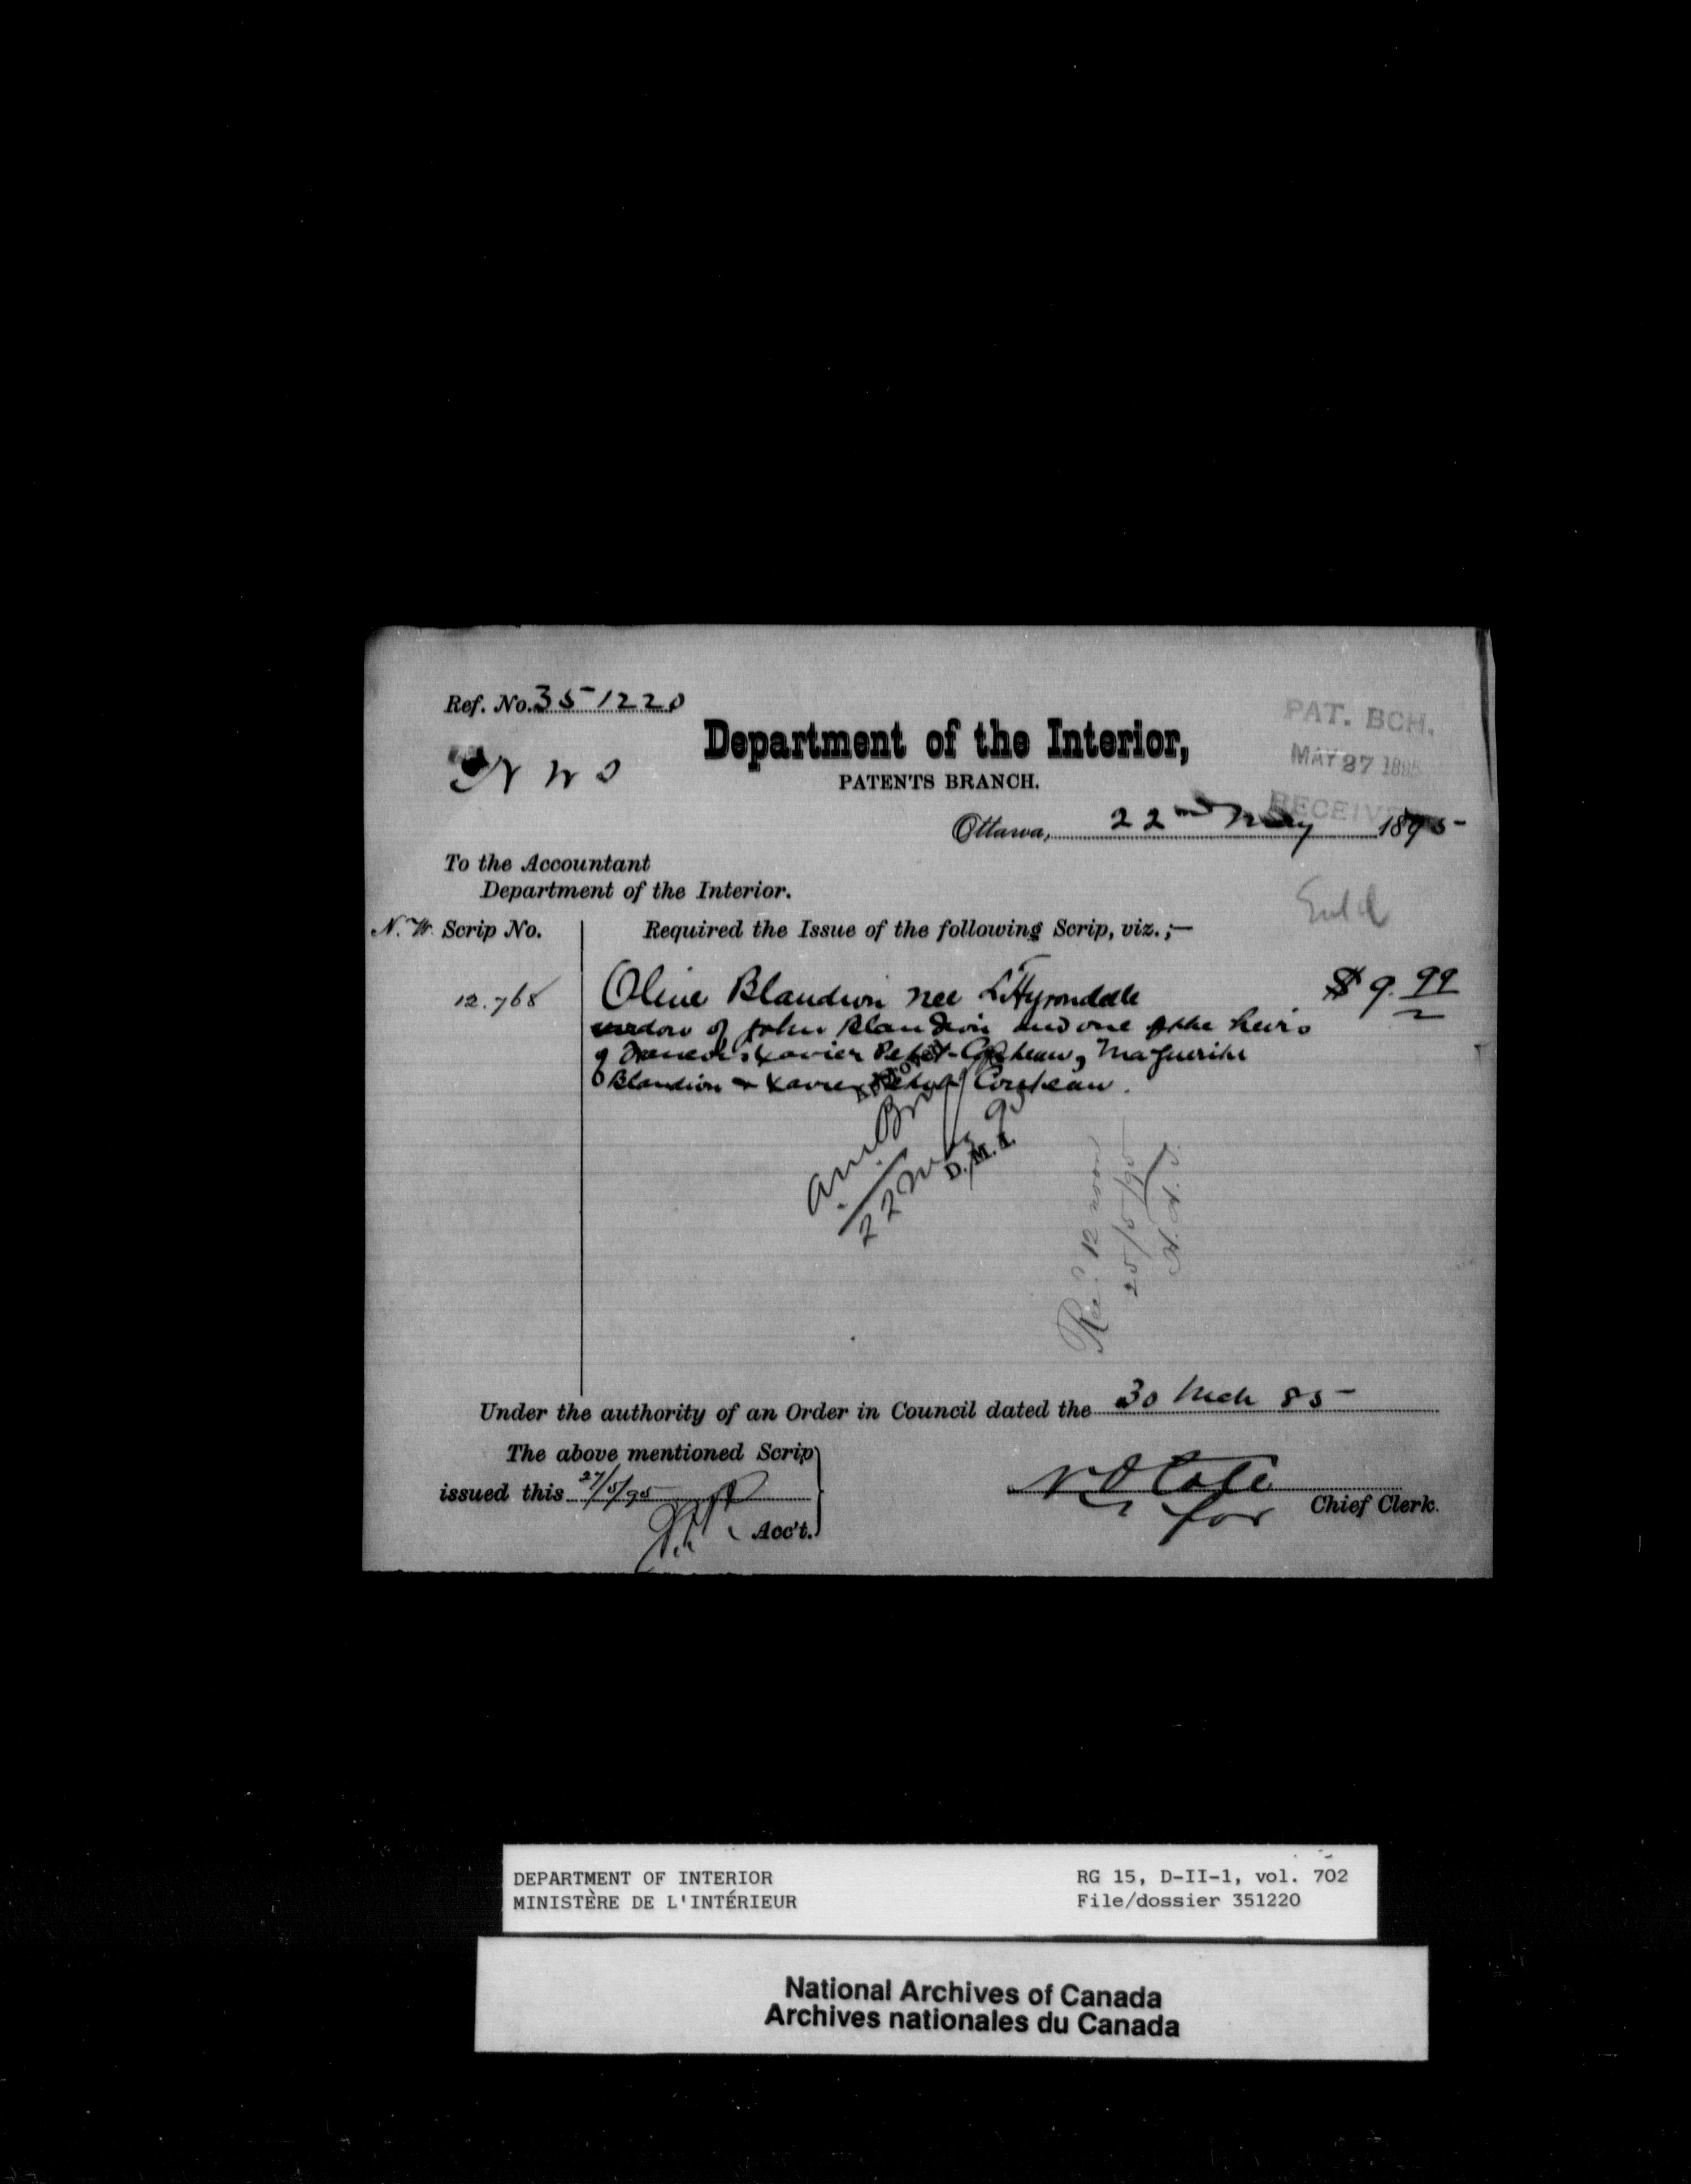 Ref. No. 351220
PAT. BCH.
MAY 27 1895
RECEIVED
Department of the Interior,
PATENTS BRANCH.
Ottawa, 22nd May 1895
To the Accountant
Department of the Interior.
Entd
N. W. Scrip No.
Required the Issue of the following Scrip, viz.;—
12.768
Olive Blandion nee L'Hyrondelle $9.99
widow of John Blandion and one of the heirs
of Francois Xavier Petit-Corcheau, Marguerite
Blandion & Xavier Petit Corcheau.
APPROVED
22 May 95
D. M. I.
Rec'd 12 noon
25/5/95
Under the authority of an Order in Council dated the 30 Mch 85
The above mentioned Scrip
issued this 27/5/95
Acc't.
N O Cote
for Chief Clerk.
DEPARTMENT OF INTERIOR
MINISTÈRE DE L'INTÉRIEUR
RG 15, D-II-1, vol. 702
File/dossier 351220
National Archives of Canada
Archives nationales du Canada